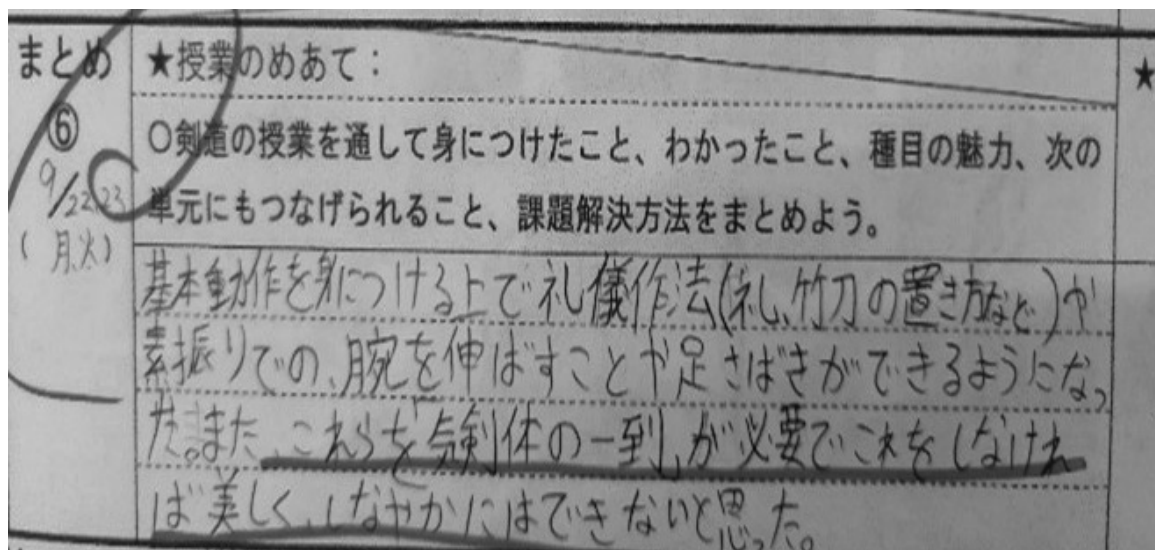 まとめ
⑥
9/22.23
(月火)
★授業のめあて：
○剣道の授業を通して身につけたこと、わかったこと、種目の魅力、次の
単元にもつなげられること、課題解決方法をまとめよう。
基本動作を身につける上で礼儀作法(礼、竹刀の置き方など)や
素振りでの、腕を伸ばすことや足さばきができるようになっ
た。また、これらを「気剣体の一致」が必要でこれをしなけれ
ば美しく、しなやかにはできないと思った。
★